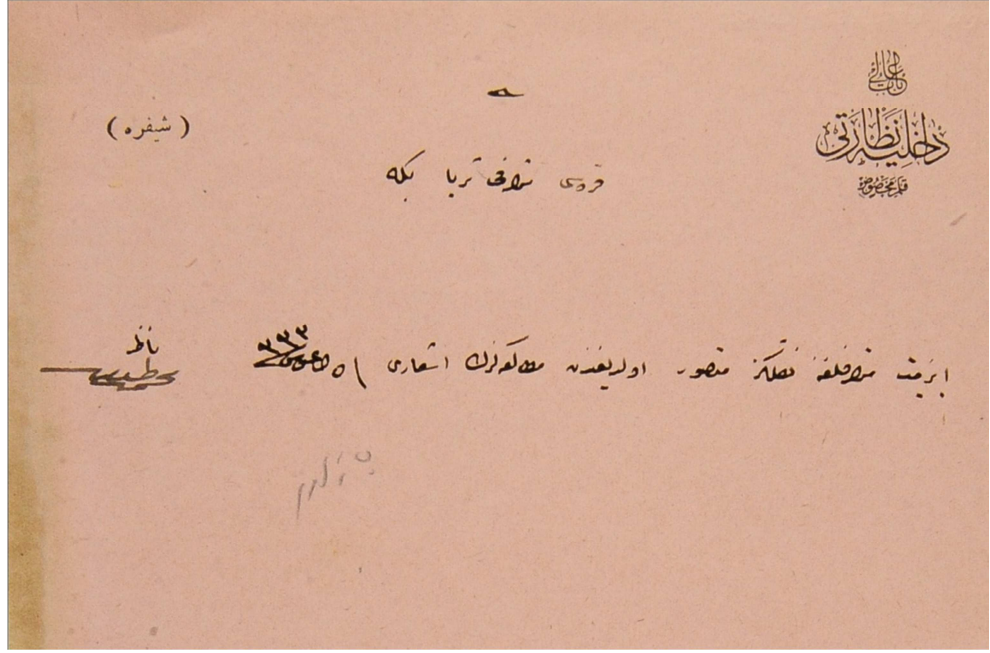 باب عالی
داخلیه نظارتی
قلم مخصوص
( شیفره )
متصرفی ثریا بكه
ازمیت متصرفلغنه نقلكز متصور اولدیغندن مطالعه كزك اشعاری
ناظر